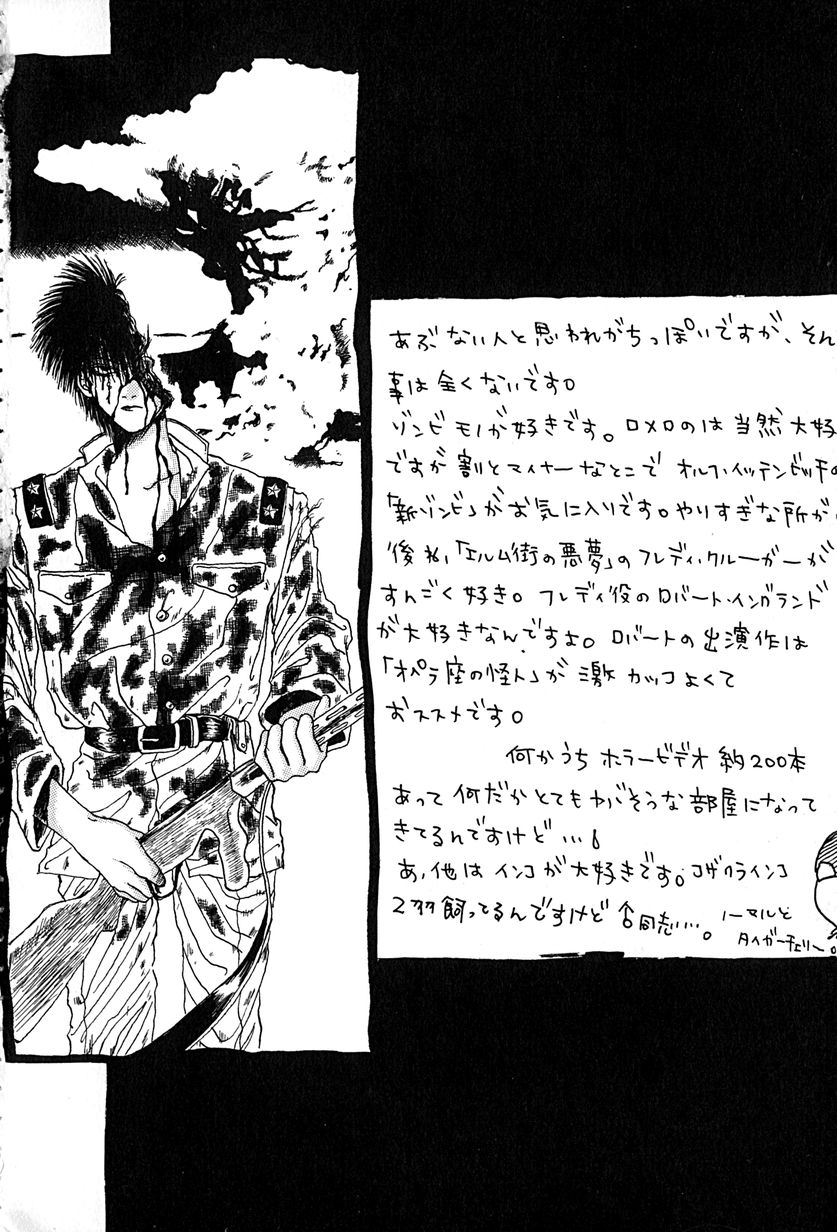 あぶない人と思われがちっぽいですが、そん
事は全くないです。
ゾンビモノが好きです。ロメロのは当然大好
ですが割とマイナーなとこで オルフ・イッテンビッチの
「新ゾンビ」がお気に入りです。やりすぎな所が
後ね、「エルム街の悪夢」のフレディ・クルーガーが
すんごく好き。フレディ役のロバート・イングランド
が大好きなんですよ。ロバートの出演作は
「オペラ座の怪人」が 激 カッコよくて
おススメです。
何かうち ホラービデオ 約200本
あって 何だかとてもヤバそうな部屋になって
きてるんですけど…。
あ、他は インコが大好きです。コザクラインコ
2羽飼ってるんですけど 同志…。 ノーマルと
タイガーチェリー。